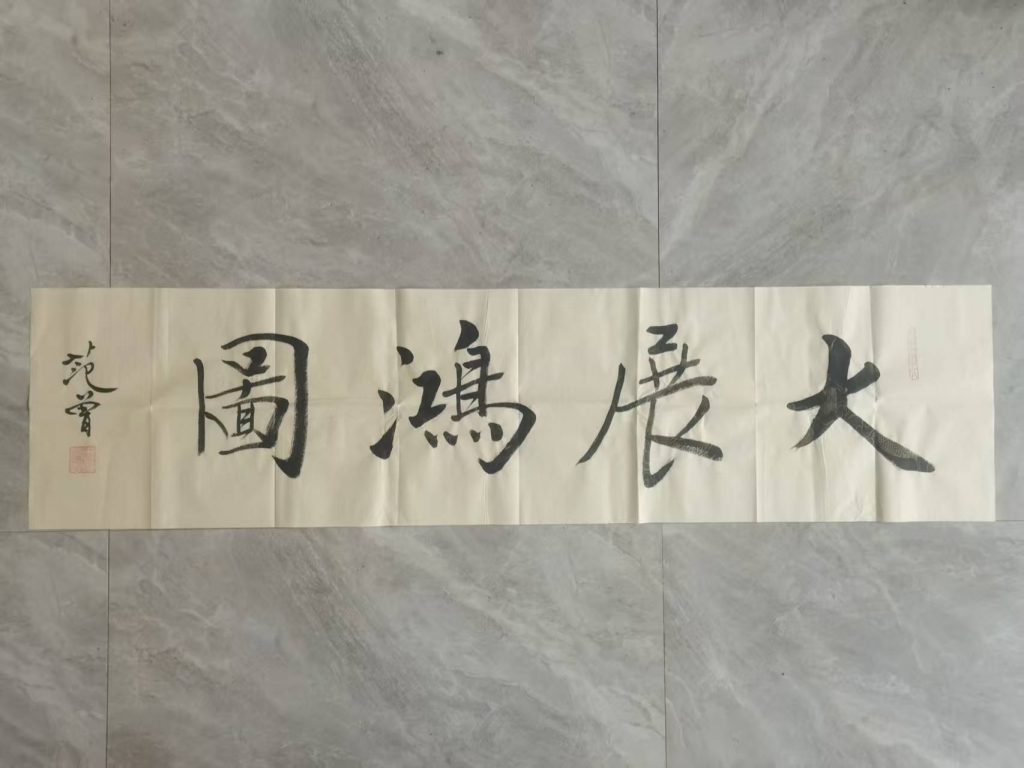 大展鴻圖
范曾